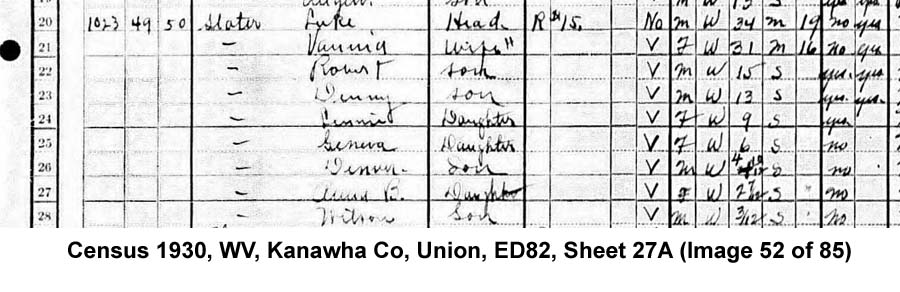 Son S
20 1023 49 50 Slater Luke Head R $15. No M W 34 M 19 no yes
21 — Wife " V F W 31 M 16 no yes
22 — Robert Son V M W 15 S yes. yes
23 — Denny Son V M W 13 S yes. yes.
24 — Daughter V F W 9 S yes
25 — Geneva Daughter V F W 6 S no
26 — Denver Son V M W S no
27 — B. Daughter V F W S no
28 — Wilson Son V M W 3/12 S no
Census 1930, WV, Kanawha Co, Union, ED82, Sheet 27A (Image 52 of 85)